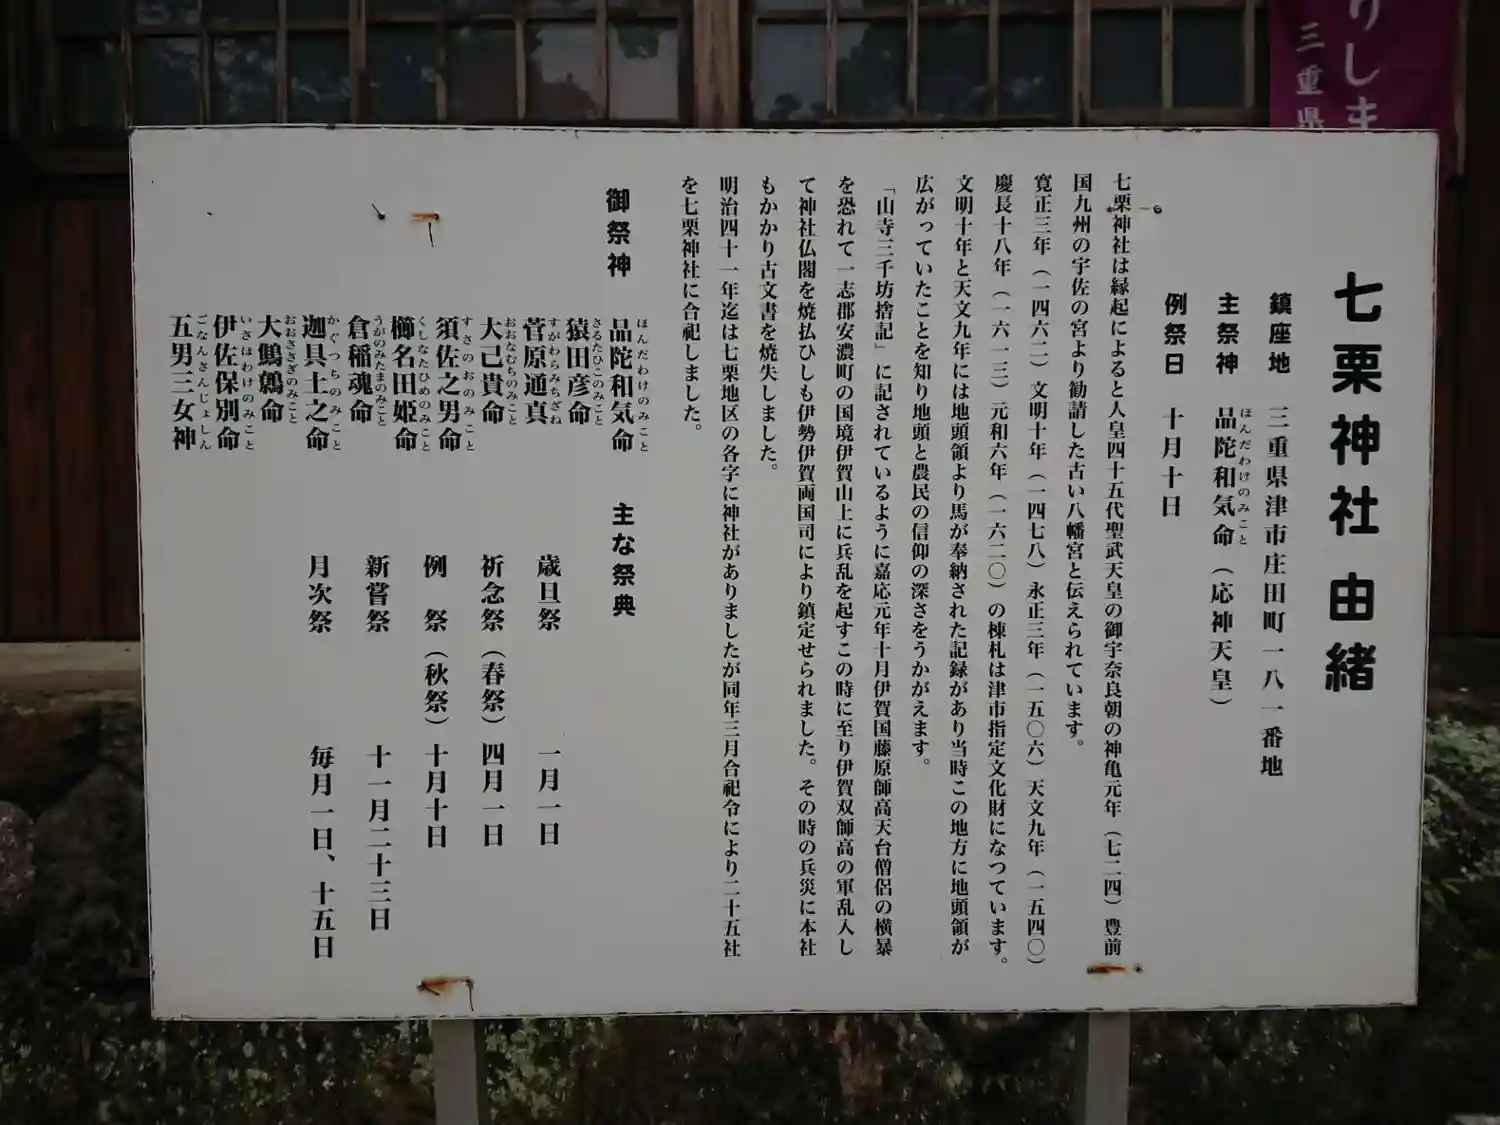 七栗神社 由緒
鎮座地 三重県津市庄田町一八一番地
主祭神 品陀和気命（応神天皇）
ほんだわけのみこと
例祭日 十月十日
七栗神社は縁起によると人皇四十五代聖武天皇の御宇奈良朝の神亀元年（七二四）豊前
国九州の宇佐の宮より勧請した古い八幡宮と伝えられています。
寛正三年（一四六二）文明十年（一四七八）永正三年（一五〇六）天文九年（一五四〇）
慶長十八年（一六一三）元和六年（一六二〇）の棟札は津市指定文化財になつています。
文明十年と天文九年には地頭領より馬が奉納された記録があり当時この地方に地頭領が
広がっていたことを知り地頭と農民の信仰の深さをうかがえます。
「山寺三千坊捨記」に記されているように嘉応元年十月伊賀国藤原師高天台僧侶の横暴
を恐れて一志郡安濃町の国境伊賀山上に兵乱を起すこの時に至り伊賀双師高の軍乱入し
て神社仏閣を焼払ひしも伊勢伊賀両国司により鎮定せられました。その時の兵災に本社
もかかり古文書を焼失しました。
明治四十一年迄は七栗地区の各字に神社がありましたが同年三月合祀令により二十五社
を七栗神社に合祀しました。
御祭神
品陀和気命
ほんだわけのみこと
猿田彦命
さるたひこのみこと
菅原道真
すがわらみちざね
大己貴命
おおなむちのみこと
須佐之男命
すさのおのみこと
櫛名田姫命
くしなたひめのみこと
倉稲魂命
うがのみたまのみこと
迦具土之命
かぐつちのみこと
大鷦鷯命
おおさざぎのみこと
伊佐保別命
いさほわけのみこと
五男三女神
ごなんさんじょしん
主な祭典
歳旦祭 一月一日
祈念祭（春祭）四月一日
例 祭（秋祭）十月十日
新嘗祭 十一月二十三日
月次祭 毎月一日、十五日
りしま
三重県